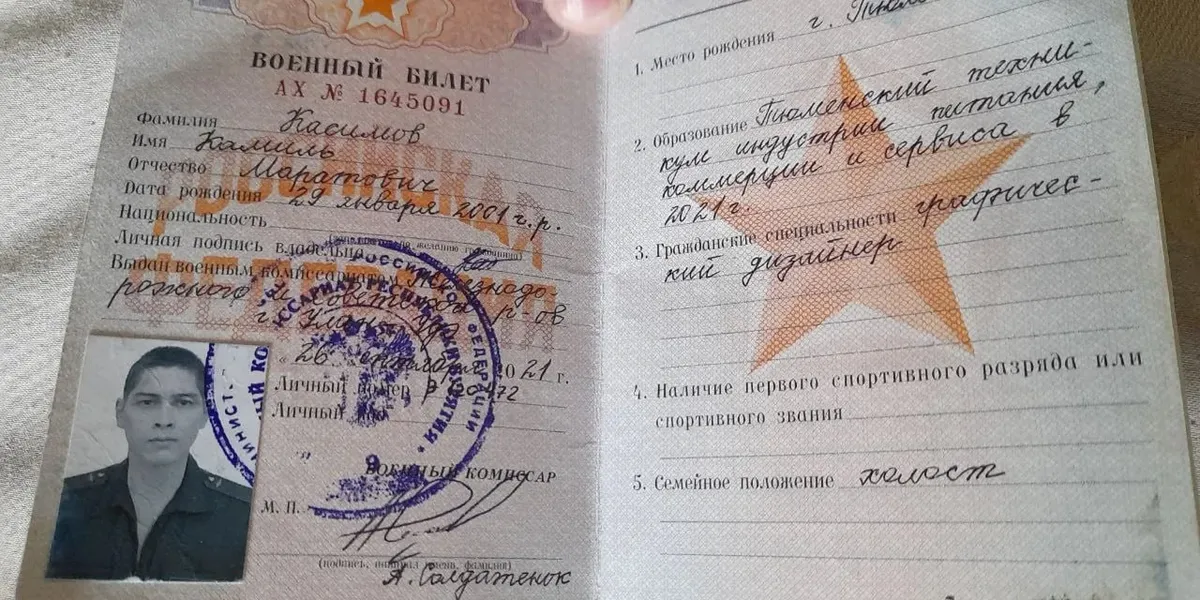 ВОЕННЫЙ БИЛЕТ
АХ № 1645091
Фамилия Касимов
Имя Камиль
Отчество Маратович
Дата рождения 29 января 2001 г.р.
Национальность
Личная подпись владельца
Выдан военным комиссариатом Железнодо
рожного и Советского р-ов
г. Улан-Удэ
26 2021 г.
Личный номер
Личный
ВОЕННЫЙ КОМИССАР
М. П.
(подпись, инициал имени, фамилия)
А. Солдатенок
1. Место рождения г.
2. Образование Тюменский техни-
кум индустрии питания,
коммерции и сервиса в
2021 г.
3. Гражданские специальности графичес-
кий дизайнер
4. Наличие первого спортивного разряда или
спортивного звания
5. Семейное положение холост